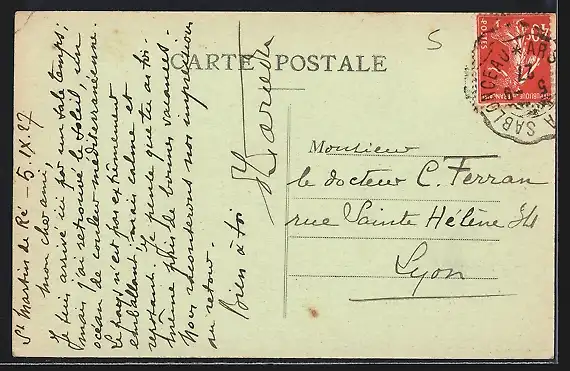 CARTE POSTALE
5
St Martin de Ré - 5.IX 27
mon cher ami,
Je suis arrivé ici par un sale temps:
mais j'ai retrouvé le soleil, un
océan de couleur méditerranéenne.
Le pays n'est pas expressément
emballant; mais calme et
reposant. Je pense que tu as toi-
même pris de bonnes vacances.
Nous raconterons nos impressions
au retour.
Bien à toi
Monsieur
le docteur C. Ferran
rue Sainte Hélène 34
Lyon
POSTES